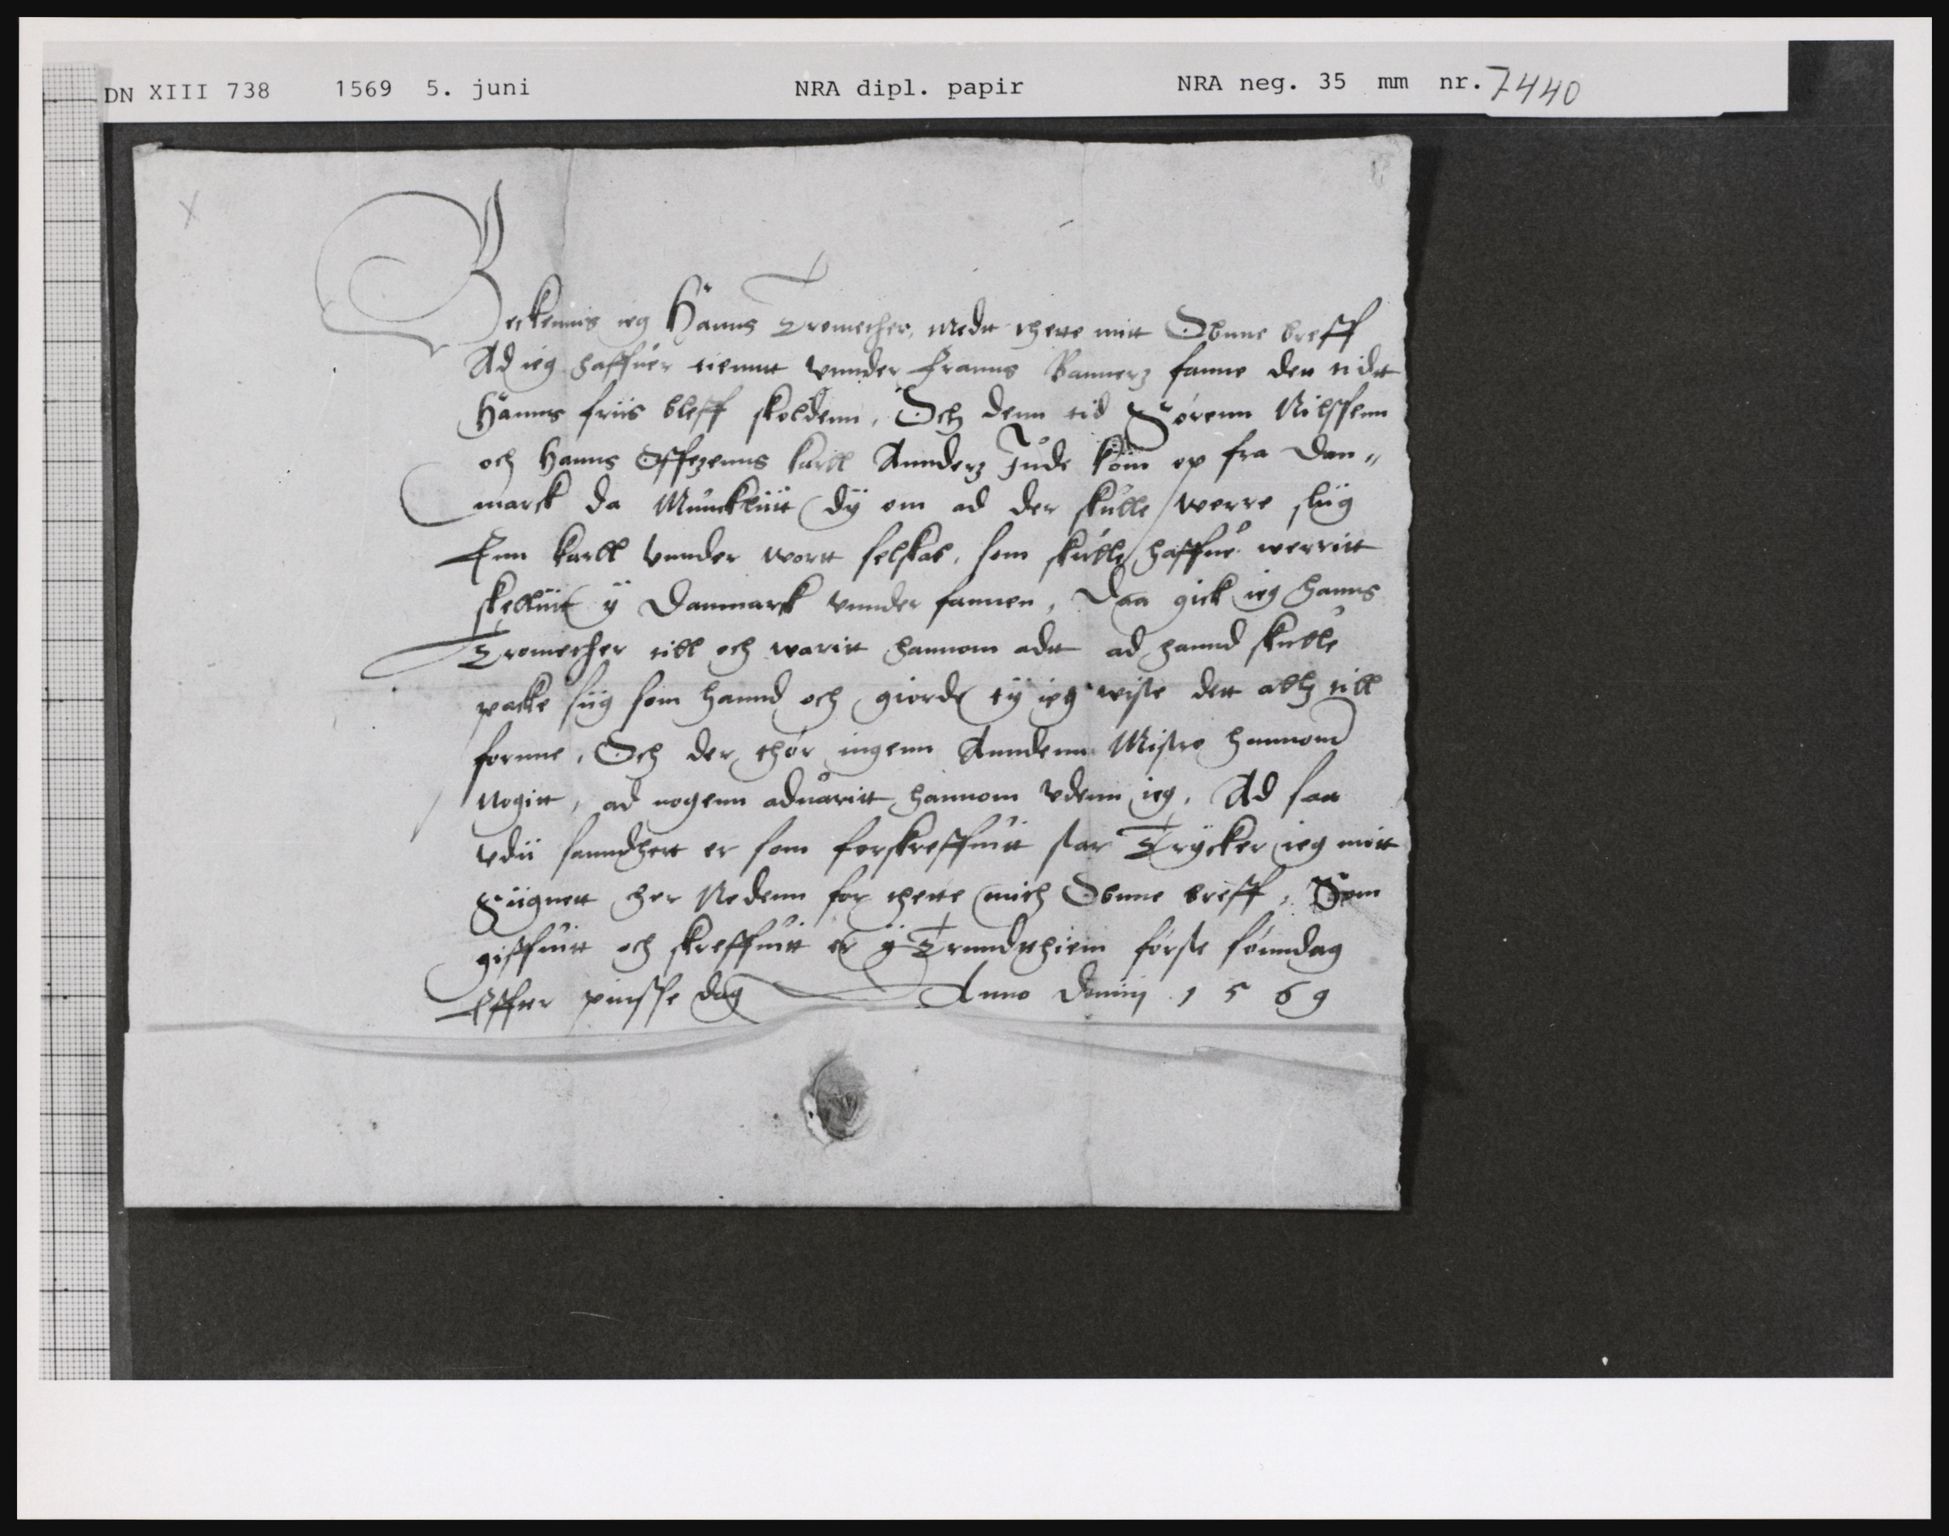 DN XIII 738 1569 5. juni NRA dipl. papir NRA neg. 35 mm nr. 7440
Beckennis ieg Hanns Tromecher, medtt thette mitt Obnne breff
Ad ieg haffuer tiennt vnnder Franns Banners fanne den tidtt
Hanns friis bleff skoldenn, Och denn tid Sörenn Nilssenn
och Hanns Offezenns karll Annderz Jude kom op fra Dan„
marck da Munckliitt dy om ad der skulle werre sliig
Enn karll vnnder wortt selskab, som skulle haffue werritt
skelliitt y Danmarck vnnder fannen, Daa gick ieg Hanns
Tromecher till och waritt hannom adtt ad hannd skulle
packe siig som hannd och giorde ty ieg wiste dett altz till
fornne, Och der thør ingenn Anndenn Mistro hannom
Nogitt, ad nogenn aduaritt hannom vdenn ieg, Ad saa
vdii sanndhett er som forskreffuitt star Trycker ieg mitt
Siignett her Nedenn for thette mith Obnne breff, Som
giffuitt och skreffuitt er y Trundthiem første sønndag
Effter pinsse dag Anno Dominj 1569